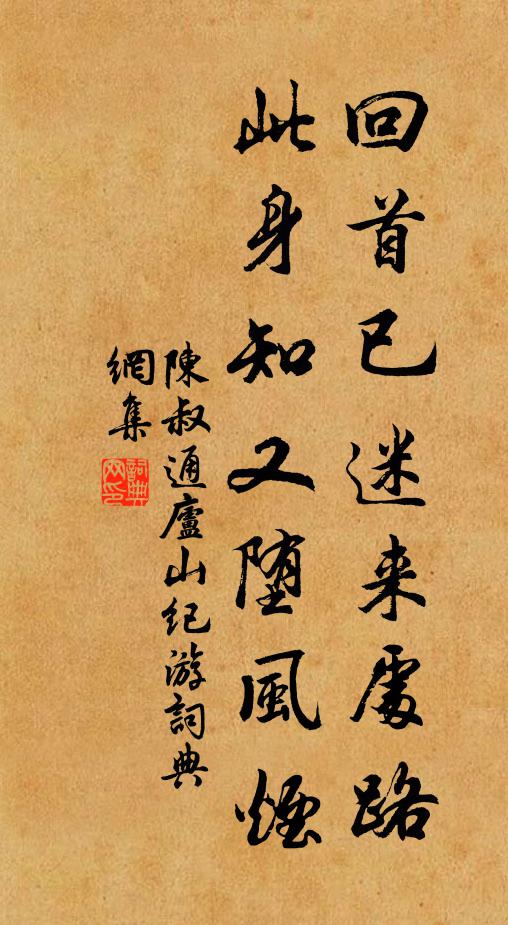 回首已迷来處路
此身知又堕風煙
陳叔通廬山纪游詞典
網集
詞典
网印